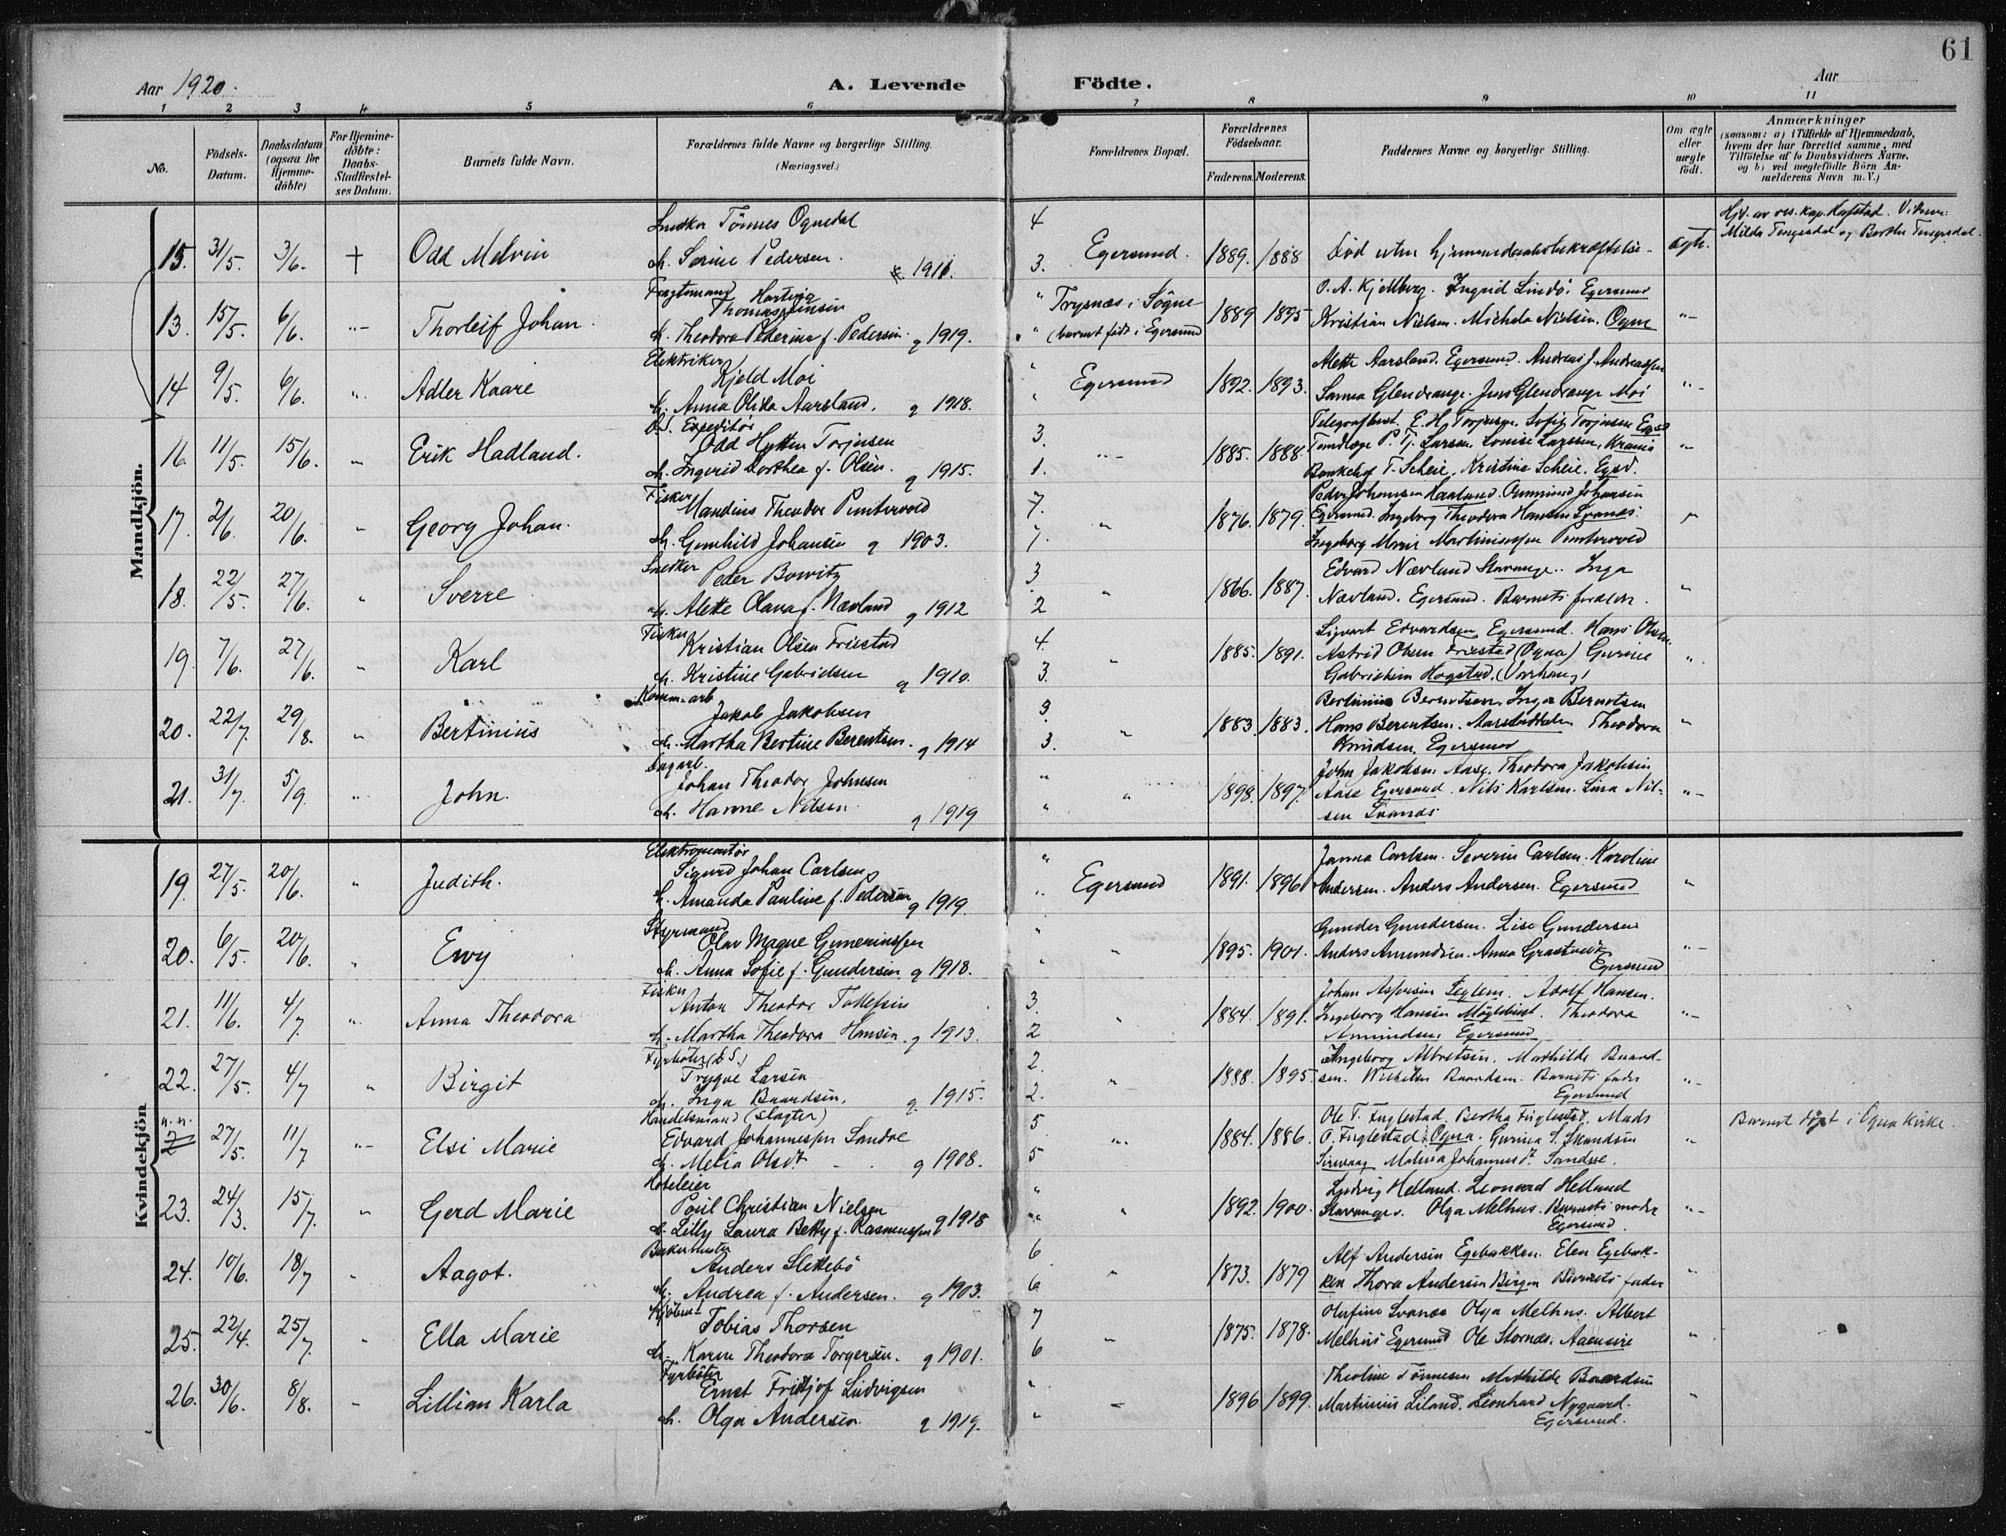 61
Aar 1920.
A. Levende Födte.
Aar
1 2 3 4 5 6 7 8 9 10 11
No.
Födsels-Datum.
Daabsdatum (ogsaa for Hjemme-döbte)
For Hjemme-döbte: Daabs-Stadfæstel-ses Datum.
Barnets fulde Navn.
Forældrenes fulde Navne og borgerlige Stilling.
(Næringsvei.)
Forældrenes Bopæl.
Forældrenes Födselsaar.
Faderens. Moderens.
Faddernes Navne og borgerlige Stilling.
Om ægte eller uægte födt.
Anmærkninger
(saasom: a) i Tilfælde af Hjemmedaab,
hvem der har forrettet samme, med
Tilföielse af to Daabsvidners Navne,
og b) ved uægtefödte Börn An-
melderens Navn m. V.)
Mandkjön.
15. 31/5. 3/6. + Odd Melvin
Snedker Tönnes Ognedal
h. Serine Pedersen. 1911.
4 3. Egersund. 1889. 1888
Död uten hjemmedaabsbekræftelse
ægte.
Hjd. av res. kap. Hafstad. Vidner:
Milda Tengesdal og Berthe Tengesdal.
13. 15/5. 6/6. "- Thorleif Johan.
Fragtemand Thomas Hartvig Jensen
h. Theodora Pederine f. Pedersen. g 1919.
Trysnæs i Søgne
(barnet født i Egersund
1889 1895
O. A. Kjelberg. Ingrid Lindö, Egersund
Kristian Nielsen. Michela Nielsen. Ogne
"-
14 9/5. 6/6. " Adler Kaare
Elektriker Kjeld Moi
h. Anna Olida Aarstad. g 1918.
Egersund 1892. 1893.
Alette Aarsland. Egersund. Andreas J. Andreassen
Sanna Glendrange. Jens Glendrange Moi
"-
16. 11/5. 15/6. " Erik Hadland.
D.S. Expeditör Odd Hytten Torjusen
h. Ingerid Dorthea f. Olsen. g 1915.
3. 1. "- 1885. 1888
Telegrafbest. E. H. Torjusen. Sofie Torjusen Egsd
Tandlæge P. Tj. Larsen, Louise Larssen, Krania
Bankchef T. Scheie, Kristine Scheie, Egsd.
"
17. 2/6. 20/6. " Georg Johan.
Fisker Mandius Theodor Puntervold
h. Gunhild Johansen g 1903.
7. 7. " 1876. 1879.
Peder Johansen Haaland. Ommund Johansen
Egersund. Ingeborg Theodora Hansen Svanes.
Ingeborg Marie Martiniussen Puntervold
18. 22/5. 27/6. " Sverre
Snedker Peter Bowitz
h. Alette Olava f. Nævland g 1912
3. 2 " 1866. 1887.
Edvard Nævland Stavanger. Inga
Nævland. Egersund. Barnets forældre.
"
19. 7/6. 27/6. " Karl
Fisker Kristian Olsen Friestad
h. Kristine Gabrielsen g 1910.
4. 3. " 1885. 1891.
Sigvart Edvardsen Egersund. Hans Olsen.
Astrid Olsen Friestad (Ogna) Gurine
Gabrielsen Hogstad. (Varhaug)
"
20. 22/7. 29/8. " Bertinius
Komm. arb Jakob Jakobsen
h. Martha Bertine Berentsen. g 1914
3. 3. " 1883. 1883.
Bertinius Berentsen, Inga Berntsen
Hans Berentsen. Aarstaddalen Theodora
Knudsen, Egersund
"
21. 31/7. 5/9. " John.
Dagarb. Johan Theodor Johnsen
h. Hanne Nilsen. g 1919
" " 1898. 1897.
John Jakobsen Aase. Theodora Jakobsen
Aase Egersund. Nils Karlsen. Lina Nil-
sen Svanes
"-
Kvindekjön
19. 27/5. 20/6. " Judith.
Elektromontör Sigurd Johan Carlsen
h. Amanda Pauline f. Pedersen g 1919.
Egersund 1891. 1896
Janna Carlsen. Severin Carlsen. Karoline
Andersen. Anders Andersen. Egersund
"
20. 6/5. 20/6. " Ewy
Styrmand Olav Magne Gunerius­sen
h. Anna Sofie f. Gundersen g 1918.
" 1895. 1901.
Gunder Gundersen. Lise Gundersen
Anders Amundsen. Anna Grastveit
Egersund
"-
21. 11/6. 4/7. " Anna Theodora
Fisker Anton Theodor Tollefsen
h. Martha Theodora Hansen. g 1913.
3. 2 " 1884. 1891.
Johan Aspersen Seglem. Adolf Hansen.
Ingeborg Hansen Möglebust. Theodora
Amundsen, Egersund
"-
22. 27/5. 4/7 " Birgit
Fyrböter (D.S.) Trygve Larsen
h. Inga Baardsen. g. 1915.
2. 2. " 1888. 1895.
Ingeborg Albretsen. Mathilde Baard-
sen. Wilhelm Baardsen. Barnets fader
Egersund
"-
n.n. 2 27/5. 11/7 "- Elsi Marie
Handelsmand (slagter) Edvard Johannessen Sandve
h. Melia Olsdt g 1908.
5 5 " 1884. 1886.
Ole T. Fuglestad, Bertha Fuglestad, Mads
O. Fuglestad, Ogna. Gurina S. Skandsen
Sirevaag Malena Johannesdt. Sandve.
"
Barnet døpt i Ogna kirke.
23. 24/3. 15/7. " Gerd Marie
Hoteleier Poul Christian Nielsen
h. Lilly Laura Betty f. Rasmussen g 1918
" 1892. 1900.
Ludvig Helland. Leonard Helland
Stavanger. Olga Melhus. Barnets moder
Egersund.
"-
24. 10/6. 18/7 " Aagot.
Bakermester Anders Slettebö
h. Andrea f. Andersen. g 1903.
6 6 " 1873. 1879
Alf Andersen Egebakken. Elen Egebak-
ken Thora Andersen Bergen Barnets fader
"
25. 22/4. 25/7. " Ella Marie
Tobias Thorsen
h. Karen Theodora Torgersen. g 1901.
7 6 " 1875. 1878.
Olufine Svanes Olga Melhus. Albert
Melhus Egersund Ole Stornæs. Aaensire
"
26. 30/6. 8/8. " Lillian Karla
Fyrböter Ernst Fridtjof Ludvigsen
h. Olga Andersen g 1919.
" 1896 1899.
Theoline Tönnesen Mathilde Baardsen
Martinius Liland. Leonhard Nygaard.
Egersund.
"